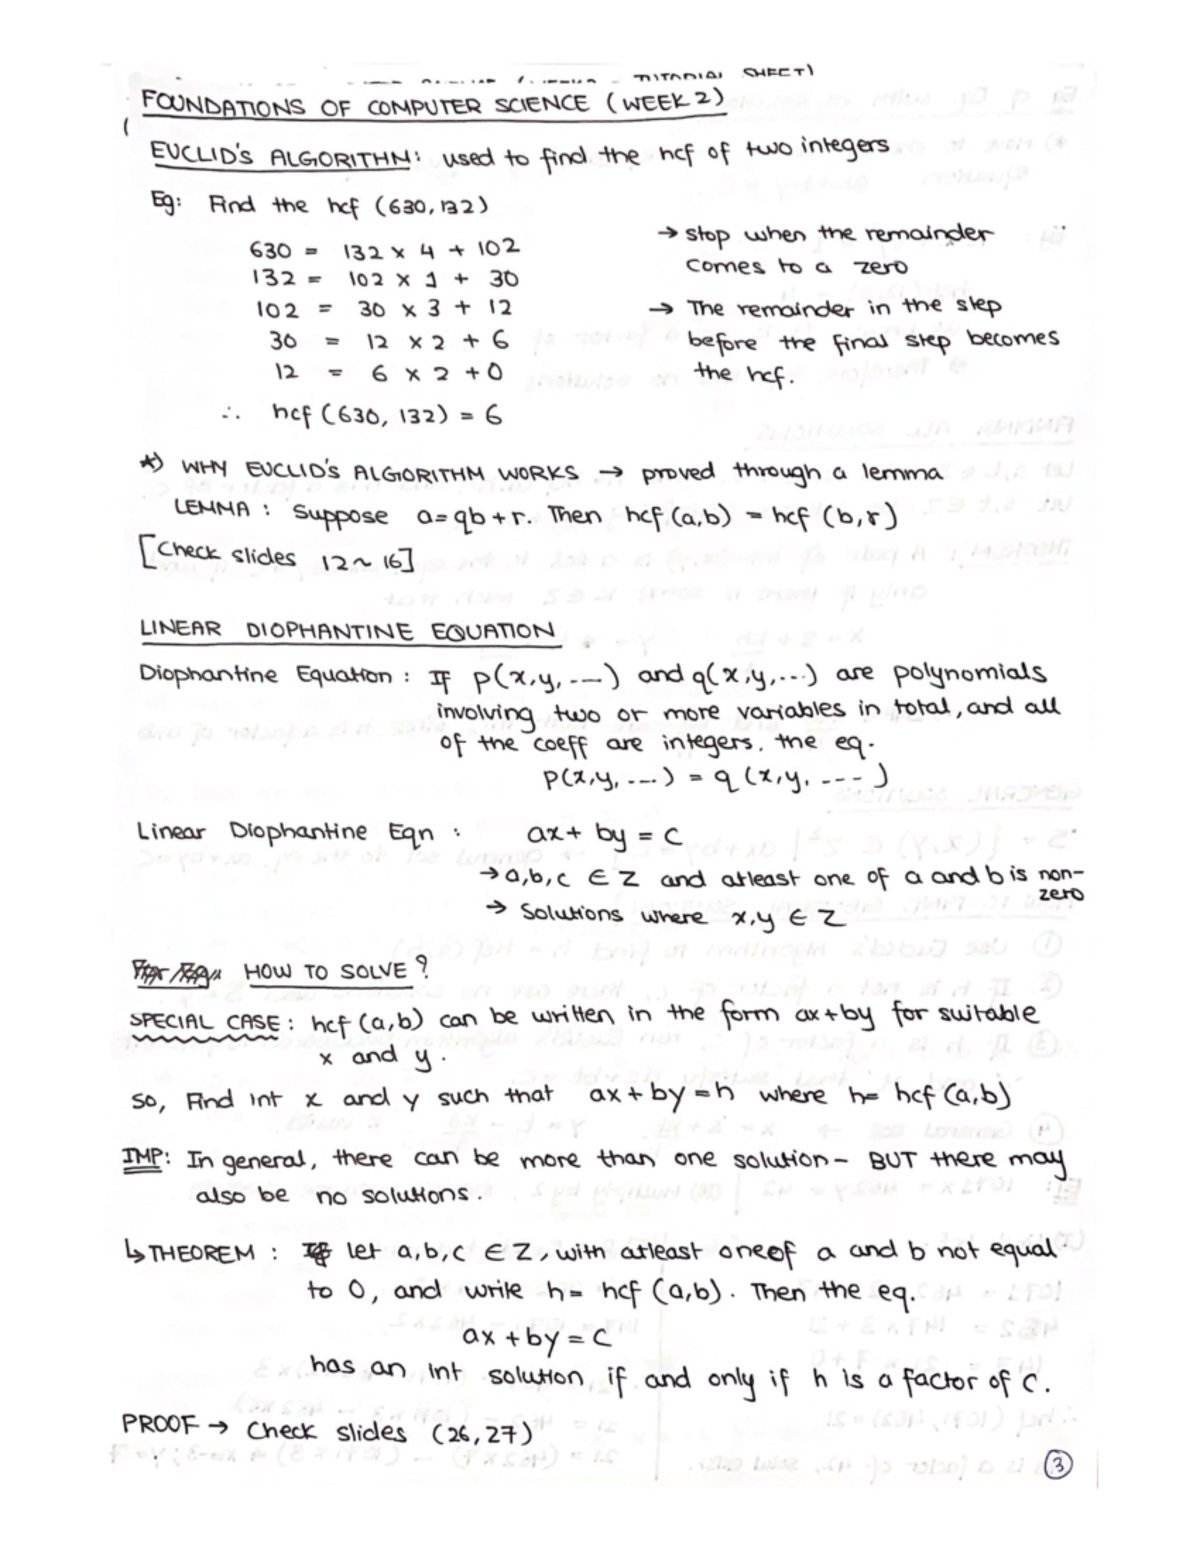 TUTORIAL SHEET)
FOUNDATIONS OF COMPUTER SCIENCE (WEEK 2)
EUCLID'S ALGORITHM: used to find the hcf of two integers
Eg: Find the hcf (630,132)
630 = 132 x 4 + 102
132 = 102 x 1 + 30
102 = 30 x 3 + 12
30 = 12 x 2 + 6
12 = 6 x 2 + 0
∴ hcf (630, 132) = 6
→ stop when the remainder
comes to a zero
→ The remainder in the step
before the final step becomes
the hcf.
*) WHY EUCLID'S ALGORITHM WORKS → proved through a lemma
LEMMA : Suppose a=qb+r. Then hcf(a,b) = hcf (b,r)
[Check slides 12~16]
LINEAR DIOPHANTINE EQUATION
Diophantine Equation : If p(x,y, ---) and q(x,y,...) are polynomials
involving two or more variables in total, and all
of the coeff are integers. the eq.
p(x,y, ---.) = q (x,y, ---)
Linear Diophantine Eqn : ax+ by = c
→ a,b,c ∈ Z and atleast one of a and b is non-
zero
→ Solutions where x,y ∈ Z
HOW TO SOLVE?
SPECIAL CASE: hcf (a,b) can be written in the form ax+by for suitable
x and y.
So, Find int x and y such that ax+by=h where h= hcf (a,b)
IMP: In general, there can be more than one solution- BUT there may
also be no solutions.
↳ THEOREM : let a,b,c ∈ Z, with atleast one of a and b not equal
to 0, and write h= hcf (a,b). Then the eq.
ax+by=c
has an int solution if and only if h is a factor of c.
PROOF → Check slides (26,27)
3